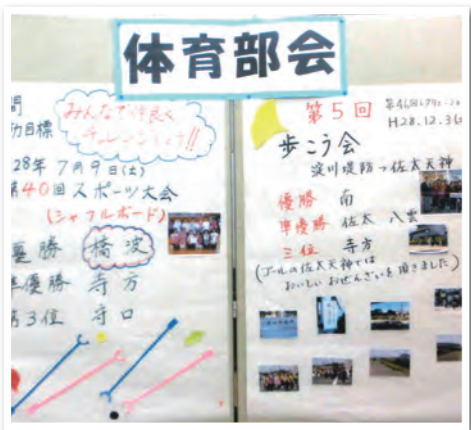 体育部会
間
動目標
みんなで仲良く
チャレンジしよう!!
28年7月9日(土)
第40回スポーツ大会
(シャフルボード)
優勝 橋波
準優勝 寺方
第3位 寺口
第5回
H28.12.3
歩こう会
淀川堤防→佐太天神
優勝 南
準優勝 佐太 八雲
三位 寺方
(ゴールの佐太天神では
おいしいおぜんざいを頂きました)